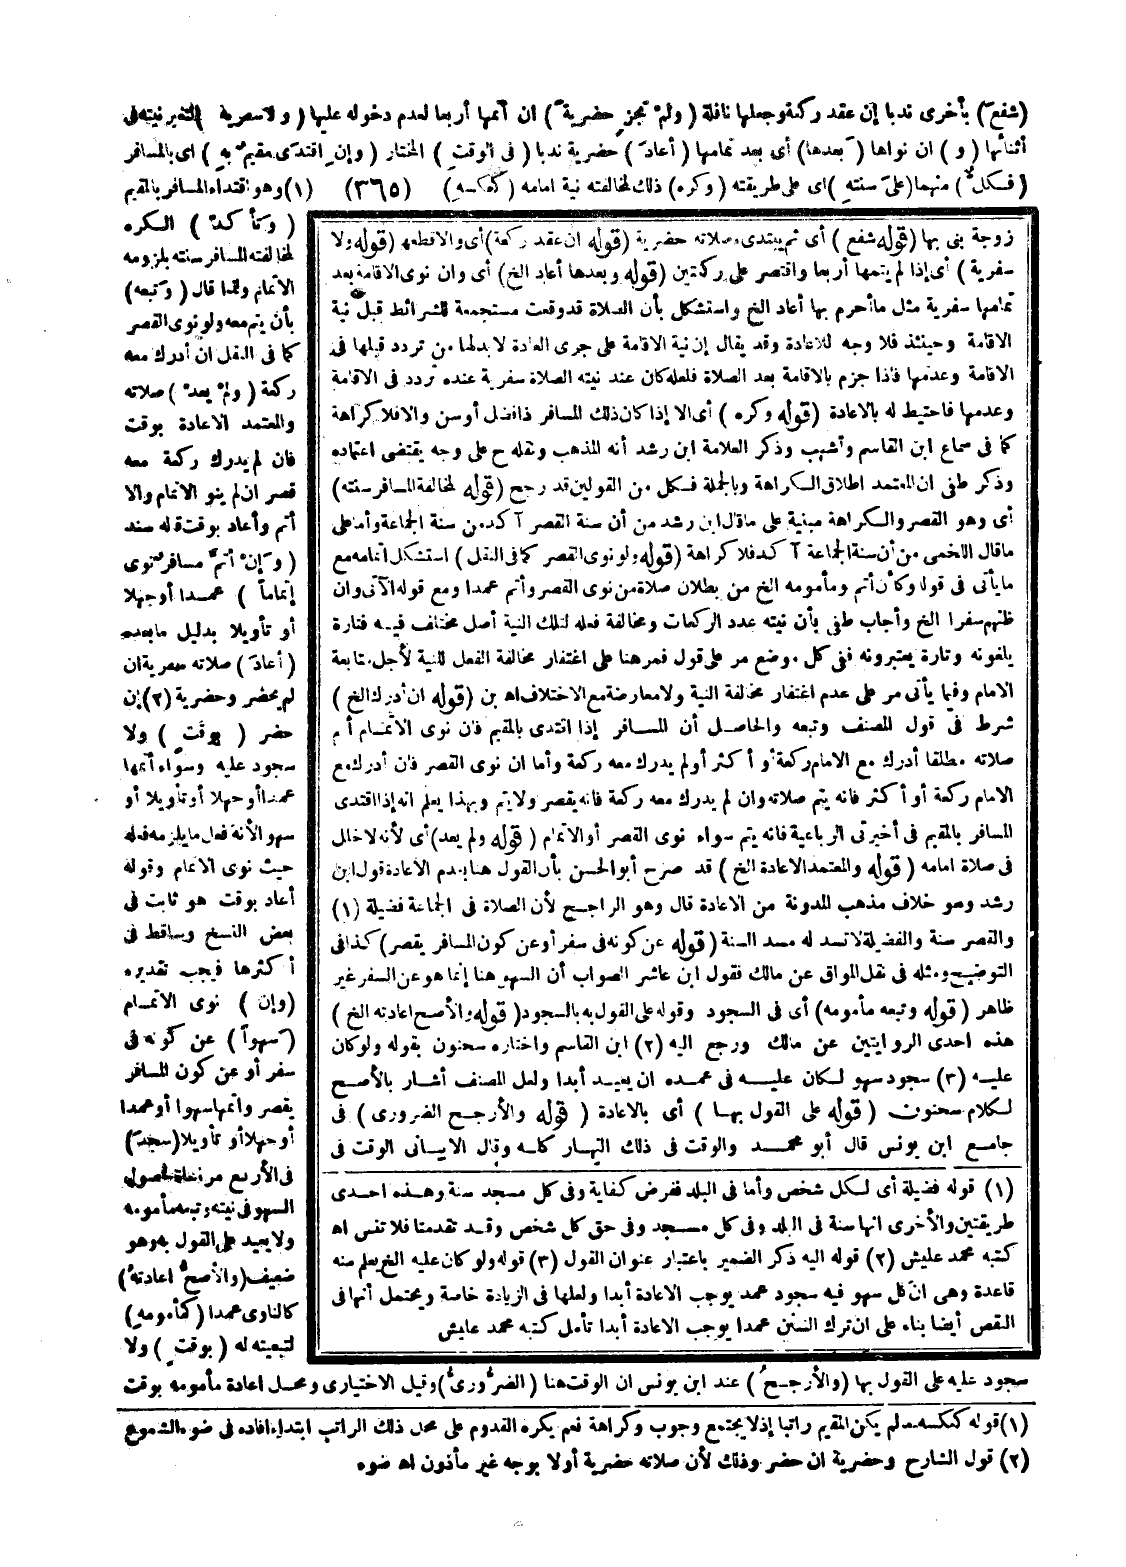 (شفع) بأخرى ندبا إن عقد ركعة وجعلها نافلة (ولم تجز حضرية) ان أتمها أربعا لعدم دخوله عليها (ولا سفرية) لتغير نيته فى
أثنائها (و) ان نواها (بعدها) أى بعد تمامها (أعاد) حضرية ندبا (فى الوقت) المختار (وإن اقتدى مقيم به) اى بالمسافر
(فكل) منهما (على سنته) اى على طريقته (وكره) ذلك لمخالفته نية امامه (كعكسه) (٣٦٥) (١) وهو اقتداء المسافر بالمقيم
(وتأكد) الكره
لمخالفته المسافر سنته بلزومه
الاتمام ولذا قال (وتبعه)
بأن يتم معه ولو نوى القصر
كما فى النقل ان أدرك معه
ركعة (ولم يعد) صلاته
والمعتمد الاعادة بوقت
فان لم يدرك ركعة معه
قصر ان لم ينو الاتمام والا
أتم وأعاد بوقت قاله سند
(وإن أتم مسافر نوى
إتماماً) عمدا أو جهلا
أو تأويلا بدليل ما بعده
(أعاد) صلاته سفرية ان
لم يحضر وحضرية (٢) إن
حضر (بوقت) ولا
سجود عليه وسواء أتمها
عمدا أو جهلا أو تأويلا أو
سهوا لأنه فعل ما يلزمه فعله
حيث نوى الاتمام وقوله
أعاد بوقت هو ثابت فى
بعض النسخ وساقط فى
أكثرها فيجب تقديره
(وإن) نوى الاتمام
(سهواً) عن كونه فى
سفر أو عن كون المسافر
يقصر وأتمها سهوا أو عمدا
أو جهلا أو تأويلا (سجد)
فى الأربع مراعاة لحصول
السهو فى نيته وتبعه مأمومه
ولا يعيد على القول به وهو
ضعيف (والأصح اعادته)
كالناوى عمدا (كمأمومه)
لتبعيته له (بوقت) ولا
زوجة بنى بها (قوله شفع) أى ثم يبتدىء صلاته حضرية (قوله ان عقد ركعة) أى والا قطعها (قوله ولا
سفرية) أى إذا لم يتمها أربعا واقتصر على ركعتين (قوله وبعدها أعاد الخ) أى وان نوى الاقامة بعد
تمامها سفرية مثل ما أحرم بها أعاد الخ واستشكل بأن الصلاة قد وقعت مستجمعة للشرائط قبل نية
الاقامة وحينئذ فلا وجه للاعادة وقد يقال إن نية الاقامة على جرى العادة لا بد لها من تردد قبلها فى
الاقامة وعدمها فاذا جزم بالاقامة بعد الصلاة فلعله كان عند نيته الصلاة سفرية عنده تردد فى الاقامة
وعدمها فاحتيط له بالاعادة (قوله وكره) أى الا إذا كان ذلك المسافر ذا فضل أو سن والا فلا كراهة
كما فى سماع ابن القاسم وأشهب وذكر العلامة ابن رشد أنه المذهب ونقله ح على وجه يقتضى اعتماده
وذكر طفى ان المعتمد اطلاق الكراهة وبالجملة فكل من القولين قد رجح (قوله لمخالفة المسافر سنته)
أى وهو القصر والكراهة مبنية على ما قال ابن رشد من أن سنة القصر آكد من سنة الجماعة وأما على
ما قال اللخمى من أن سنة الجماعة آكد فلا كراهة (قوله ولو نوى القصر كما فى النقل) استشكل اتمامه مع
ما يأتى فى قوله وكأن أتم ومأمومه الخ من بطلان صلاة من نوى القصر وأتم عمدا ومع قوله الآتى وان
ظنهم سفرا الخ وأجاب طفى بأن نيته عدد الركعات ومخالفة فعله لتلك النية أصل مختلف فيه فتارة
يلغونه وتارة يعتبرونه ففى كل موضع مر على قول فمر هنا على اغتفار مخالفة الفعل للنية لأجل متابعة
الامام وفيما يأتى مر على عدم اغتفار مخالفة النية ولا معارضة مع الاختلاف اه بن (قوله ان أدرك الخ)
شرط فى قول المصنف وتبعه والحاصل أن المسافر إذا اقتدى بالمقيم فان نوى الاتمام أتم
صلاته مطلقا أدرك مع الامام ركعة أو أكثر أو لم يدرك معه ركعة وأما ان نوى القصر فان أدرك مع
الامام ركعة أو أكثر فانه يتم صلاته وان لم يدرك معه ركعة فانه يقصر ولا يتم وبهذا يعلم انه إذا اقتدى
المسافر بالمقيم فى أخيرتى الرباعية فانه يتم سواء نوى القصر أو الاتمام (قوله ولم يعد) أى لأنه لا خلل
فى صلاة امامه (قوله والمعتمد الاعادة الخ) قد صرح أبو الحسن بأن القول هنا بعدم الاعادة قول ابن
رشد وهو خلاف مذهب المدونة من الاعادة قال وهو الراجح لأن الصلاة فى الجماعة فضيلة (١)
والقصر سنة والفضيلة لا تسد له مسد السنة (قوله عن كونه فى سفر أو عن كون المسافر يقصر) كذا فى
التوضيح ومثله فى نقل المواق عن مالك فقول ابن عاشر الصواب أن السهو هنا إنما هو عن السفر غير
ظاهر (قوله وتبعه مأمومه) أى فى السجود وقوله على القول به بالسجود (قوله والأصح اعادته الخ)
هذه احدى الروايتين عن مالك ورجع اليه (٢) ابن القاسم واختاره سحنون بقوله ولو كان
عليه (٣) سجود سهو لكان عليه فى عمده ان يعيد أبدا ولعل المصنف أشار بالأصح
لكلام سحنون (قوله على القول بها) أى بالاعادة (قوله والأرجح الضرورى) فى
جامع ابن يونس قال أبو محمد والوقت فى ذلك النهار كله وقال الابيانى الوقت فى
(١) قوله فضيلة أى لكل شخص وأما فى البلد ففرض كفاية وفى كل مسجد سنة وهذه احدى
طريقتين والأخرى انها سنة فى البلد وفى كل مسجد وفى حق كل شخص وقد تقدمتا فلا تنس اه
كتبه محمد عليش (٢) قوله اليه ذكر الضمير باعتبار عنوان القول (٣) قوله ولو كان عليه الخ يعلم منه
قاعدة وهى ان كل سهو فيه سجود عمد يوجب الاعادة أبدا ولعلها فى الزيادة خاصة ويحتمل أنها فى
النقص أيضا بناء على ان ترك السنن عمدا يوجب الاعادة أبدا تأمل كتبه محمد عليش
سجود عليه على القول بها (والأرجح) عند ابن يونس ان الوقت هنا (الضرورى) وقيل الاختيارى ومحل اعادة مأمومه بوقت
(١) قوله كعكسه ما لم يكن المقيم راتبا إذ لا يجتمع وجوب وكراهة نعم يكره القدوم على محل ذلك الراتب ابتداء افاده فى ضوء الشموع
(٢) قول الشارح وحضرية ان حضر وذلك لأن صلاته حضرية أولا بوجه غير مأذون اه ضوء